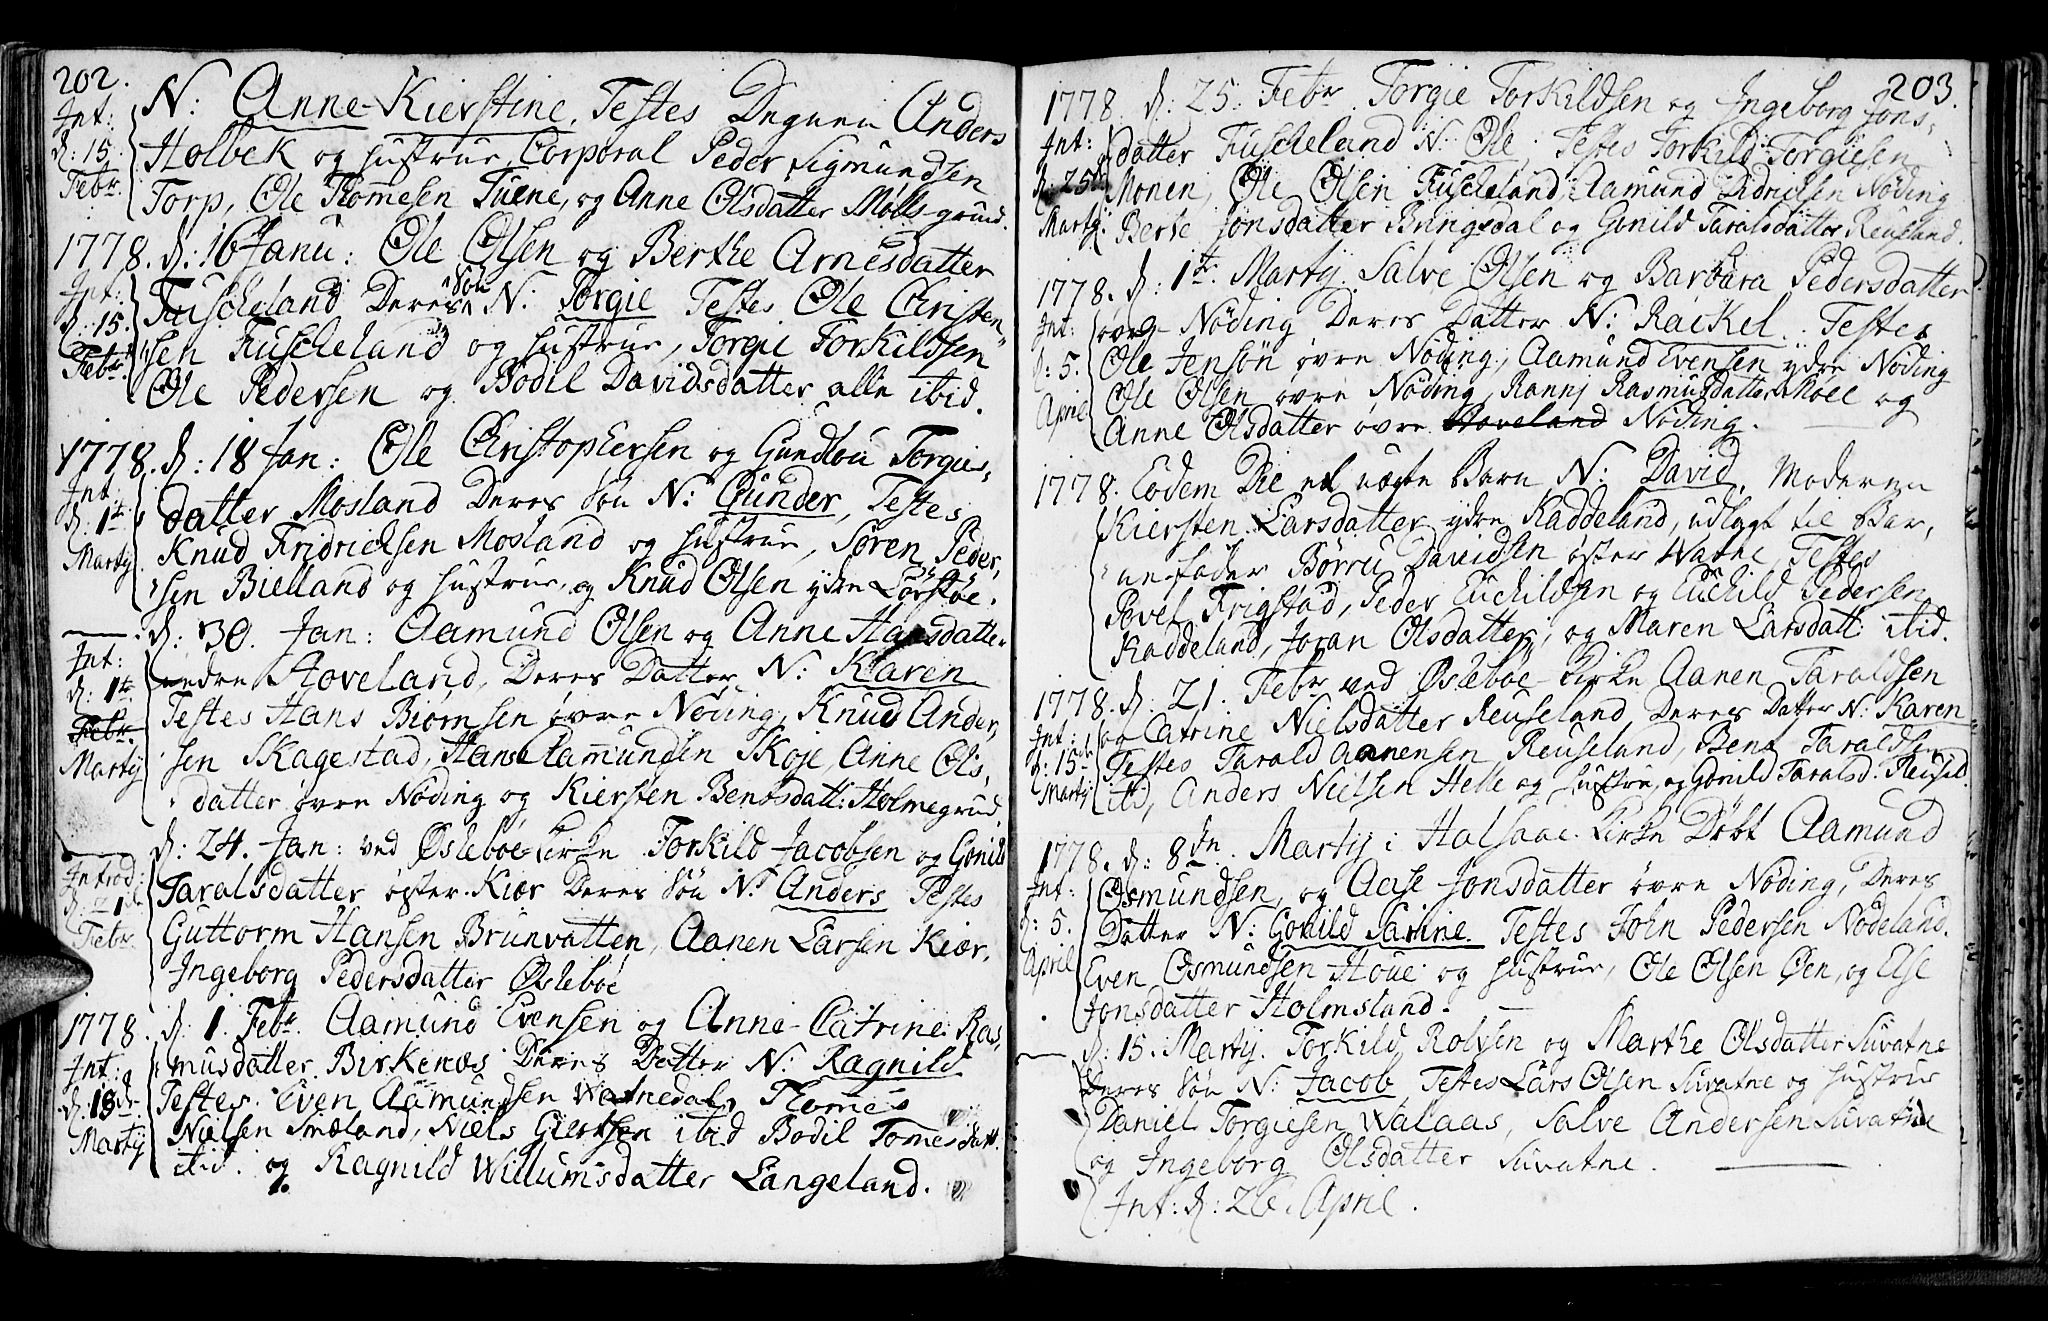 202.
N: Anne-Kierstine, Testes Degnen Anders
Int:
d: 15.
Febr.
Holbek og Hustrue, Corporal Peder Sigmundsen
Torp, Ole Thomesen Tuene, og Anne Olsdatter Molls-grund.
1778. d: 16 Janu: Ole Olsen og Berthe Arnesdatter
Int:
d: 15.
Febr.
Fuscheland Deres Søn N: Torgie Testes Ole Christen-
sen Fuscheland og Hustrue, Torgie Torkildsen
Ole Pedersen og Bodil Davidsdatter alle ibid.
1778. d: 18 Jan: Ole Christophersen og Gundlou Torgies-
Int:
d: 1te
Martij
datter Mosland Deres Søn N: Gunder, Testes
Knud Fridricksen Mosland og Hustrue, Søren Peder-
sen Bielland og Hustrue, og Knud Olsen ydre Lörsköe.
d: 30. Jan: Aamund Olsen og Anne Hansdatter
Int:
d: 1te
Febr.
Martij
nedre Hoveland, Deres Datter N: Karen
Testes Hans Biornsen övre Nöding, Knud Ander-
sen Skagestad, Hans Aamundsen Skoje, Anne Ols-
datter övre Nöding og Kiersten Bentsdatt: Holmegrud.
d: 24. Jan: ved Øslebøe Kirke Torkild Jacobsen og Gonild
Introd:
d: 21de
Febr
Taralsdatter öster-Kiær Deres Søn N: Anders Testes
Guttorm Hansen Brunvatten, Aanen Larsen Kiær,
Ingeborg Pedersdatter Øslebøe
1778. d: 1. Febr. Aamund Evensen og Anne-Catrine Ras-
Int:
d: 18de
Martij
musdatter Birkenæs Deres Datter N: Ragnild
Testes. Even Aamundsen Watnedal, Thomes
Nielsen Smæland, Niels Giertsen ibid Bodil Tomesdatt.
ibid. og Ragnild Willumsdatter Langeland.
203.
1778. d: 25. Febr Torgie Torkildsen og Ingeborg Jons-
Int:
d: 25de
Martij
datter Fuscheland N: Ole. Testes Torkild Torgiesen
Monen, Ole Olsen Fuscheland, Aamund Didricksen Nöding
Berte Jonsdatter Bringsdal og Gonild Taralsdatter Reuseland.
1778. d: 1te Martij Salve Olsen og Barbara Pedersdatter
Int:
d: 5.
April
övre Nöding Deres Datter N: Rackel. Testes
Ole Jensön övre Nöding, Aamund Evensen ydre Nöding
Ole Olsen övre Nöding, Ranni Rasmusdatter Moll og
Anne Olsdatter övre Hoveland Nöding.
1778. Eodem Die et uægte Barn N: David. Moderen
Kiersten Larsdatter ydre Raddeland, udlagt til Bar-
nefader Börru Davidsen öster Watne Testes
Povel Frigstad, Peder Euchildsen og Euchild Pedersen
Raddeland, Joran Olsdatter, og Maren Larsdatt: ibid.
1778. d: 21. Febr ved Øslebøe Kirke Aanen Taraldsen
Int:
d: 15de
Martij
og Catrine Nielsdatter Reuseland, Deres Datter N: Karen
Testes Tarald Aanensen Reuseland, Bent Taraldsen
ibid, Anders Nielsen Helle og Hustru, og Gonild Taralsd. Reusel.
1778. d: 8de Martij i Halsaae Kirke Döbt Aamund
Int:
d: 5.
April
Osmundsen, og Aase Jonsdatter övre Nöding, Deres
Datter N: Gonild Sarine. Testes John Pedersen Nödeland.
Even Osmundsen Houe og Hustrue, Ole Olsen Öen, og Else
Jonsdatter Holmsland.
d: 15. Martij. Torkild Rolvsen og Marthe Olsdatter Suvatne
Deres Søn N: Jacob Testes Lars Olsen Suvatne og Hustrue
Daniel Torgiesen Walaas, Salve Andersen Suvatne
og Ingeborg Olsdatter Suvatne.
Int: d: 26. April.